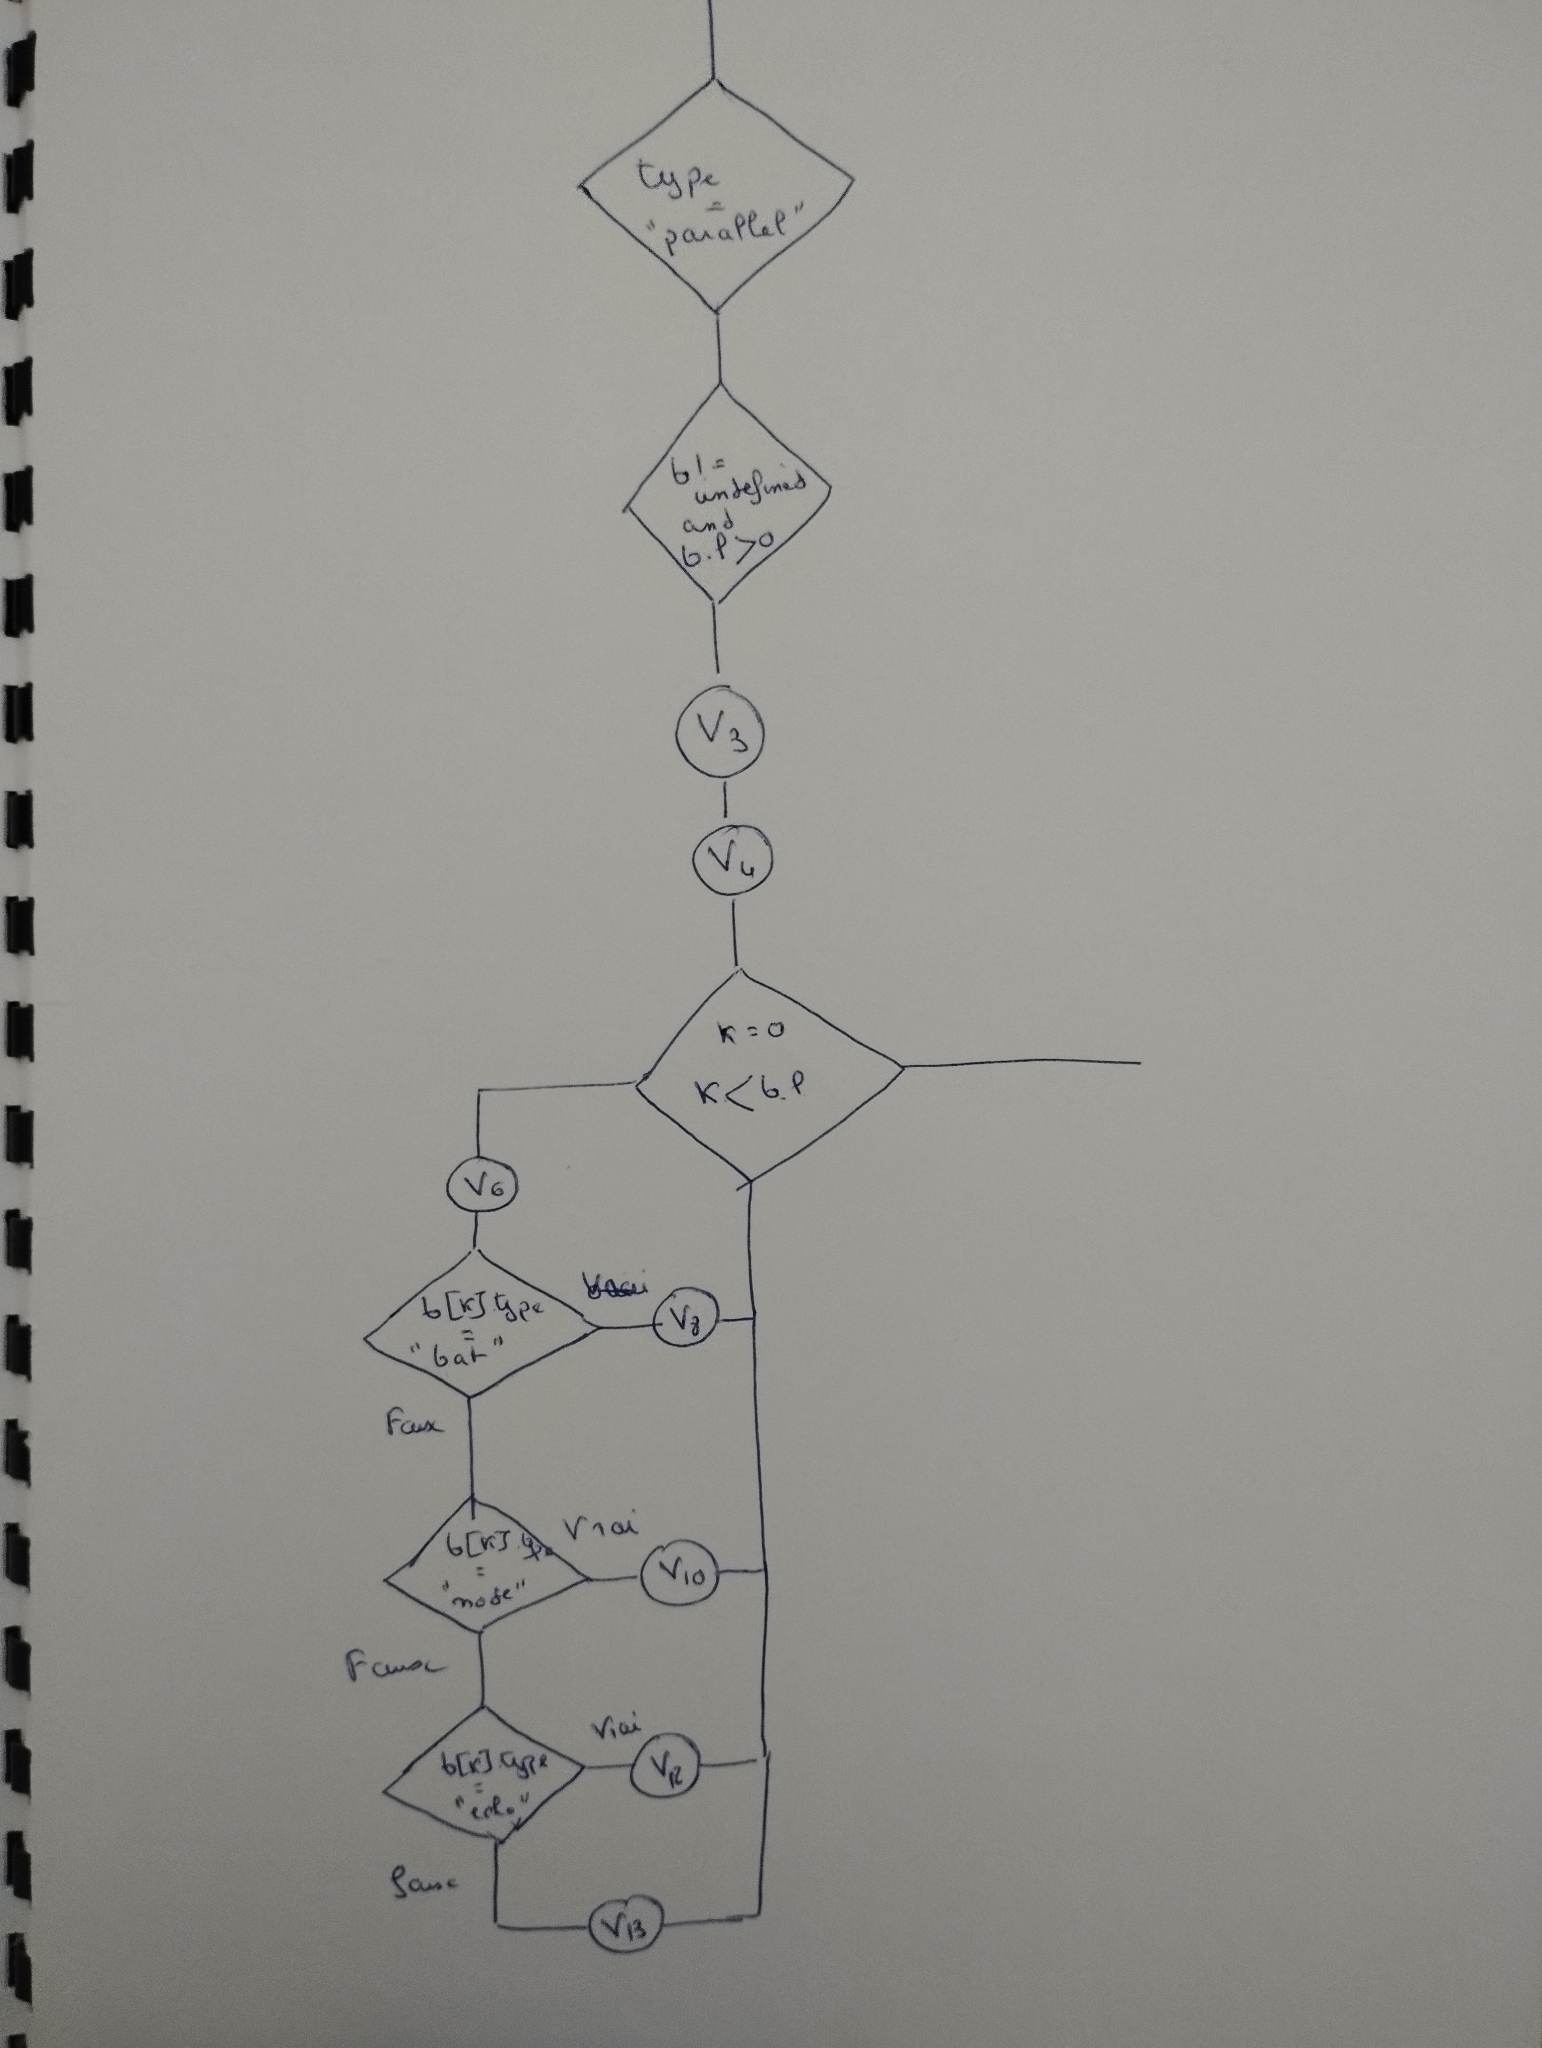 type
=
"parallel"
b !=
undefined
and
b.l > 0
V3
V4
K = 0
K < b.l
V6
b[K].type
=
"bat"
Vrai
V8
Faux
b[K].type
=
"node"
Vrai
V10
Faux
b[K].type
=
"echo"
Vrai
V12
Faux
V13